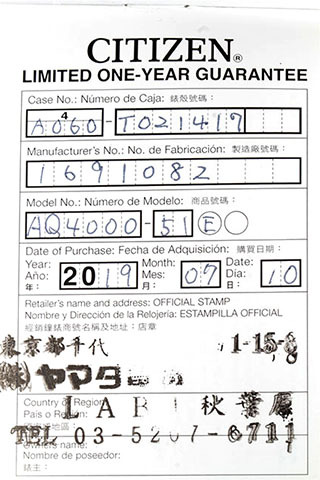 CITIZEN®
LIMITED ONE-YEAR GUARANTEE
Case No.: Número de Caja: 錶殼號碼：
A060-T021417
4
Manufacturer's No.: No. de Fabricación: 製造廠號碼：
1691082
Model No.: Número de Modelo: 商品號碼：
AQ4000-51E
Date of Purchase: Fecha de Adquisición: 購買日期：
Year: Año: 年： 2019 Month: Mes: 月： 07 Date: Día: 日： 10
Retailer's name and address: OFFICIAL STAMP
Nombre y Dirección de la Relojería: ESTAMPILLA OFFICIAL
經銷鐘錶商號名稱及地址：店章
東京都千代 1-15-8
㈱ヤマダ
Country of Region:
País o Región:
LABI 秋葉原
TEL 03-5207-6711
Owners name:
Nombre de poseedor:
錶主：